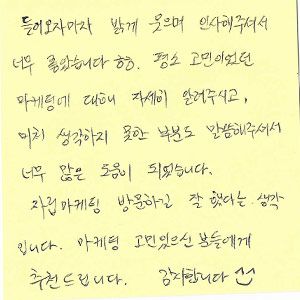 들어오자마자 밝게 웃으며 인사해주셔서
너무 좋았습니다 ㅎㅎ. 평소 고민이었던
마케팅에 대해 자세히 알려주시고,
미처 생각하지 못한 부분도 말씀해주셔서
너무 많은 도움이 되었습니다.
자립마케팅 방문하길 잘 했다는 생각
입니다. 마케팅 고민있으신 분들에게
추천드립니다. 감사합니다